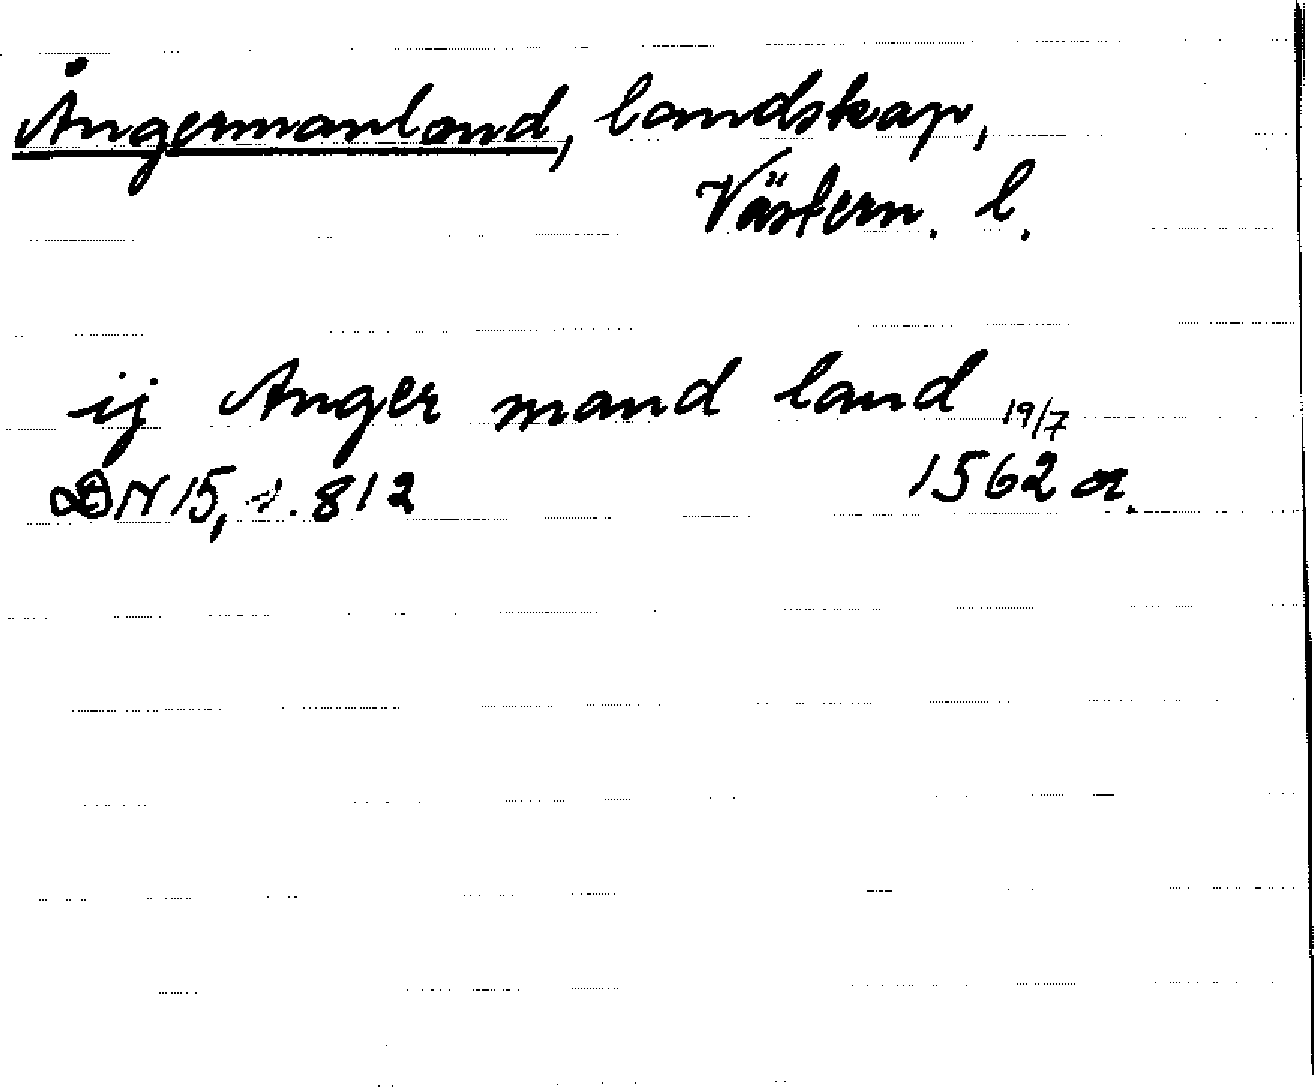 Ångermanland, landskap,
Västern. l.
ij Anger mand land 19/7
DN 15, s. 812 1562 or.